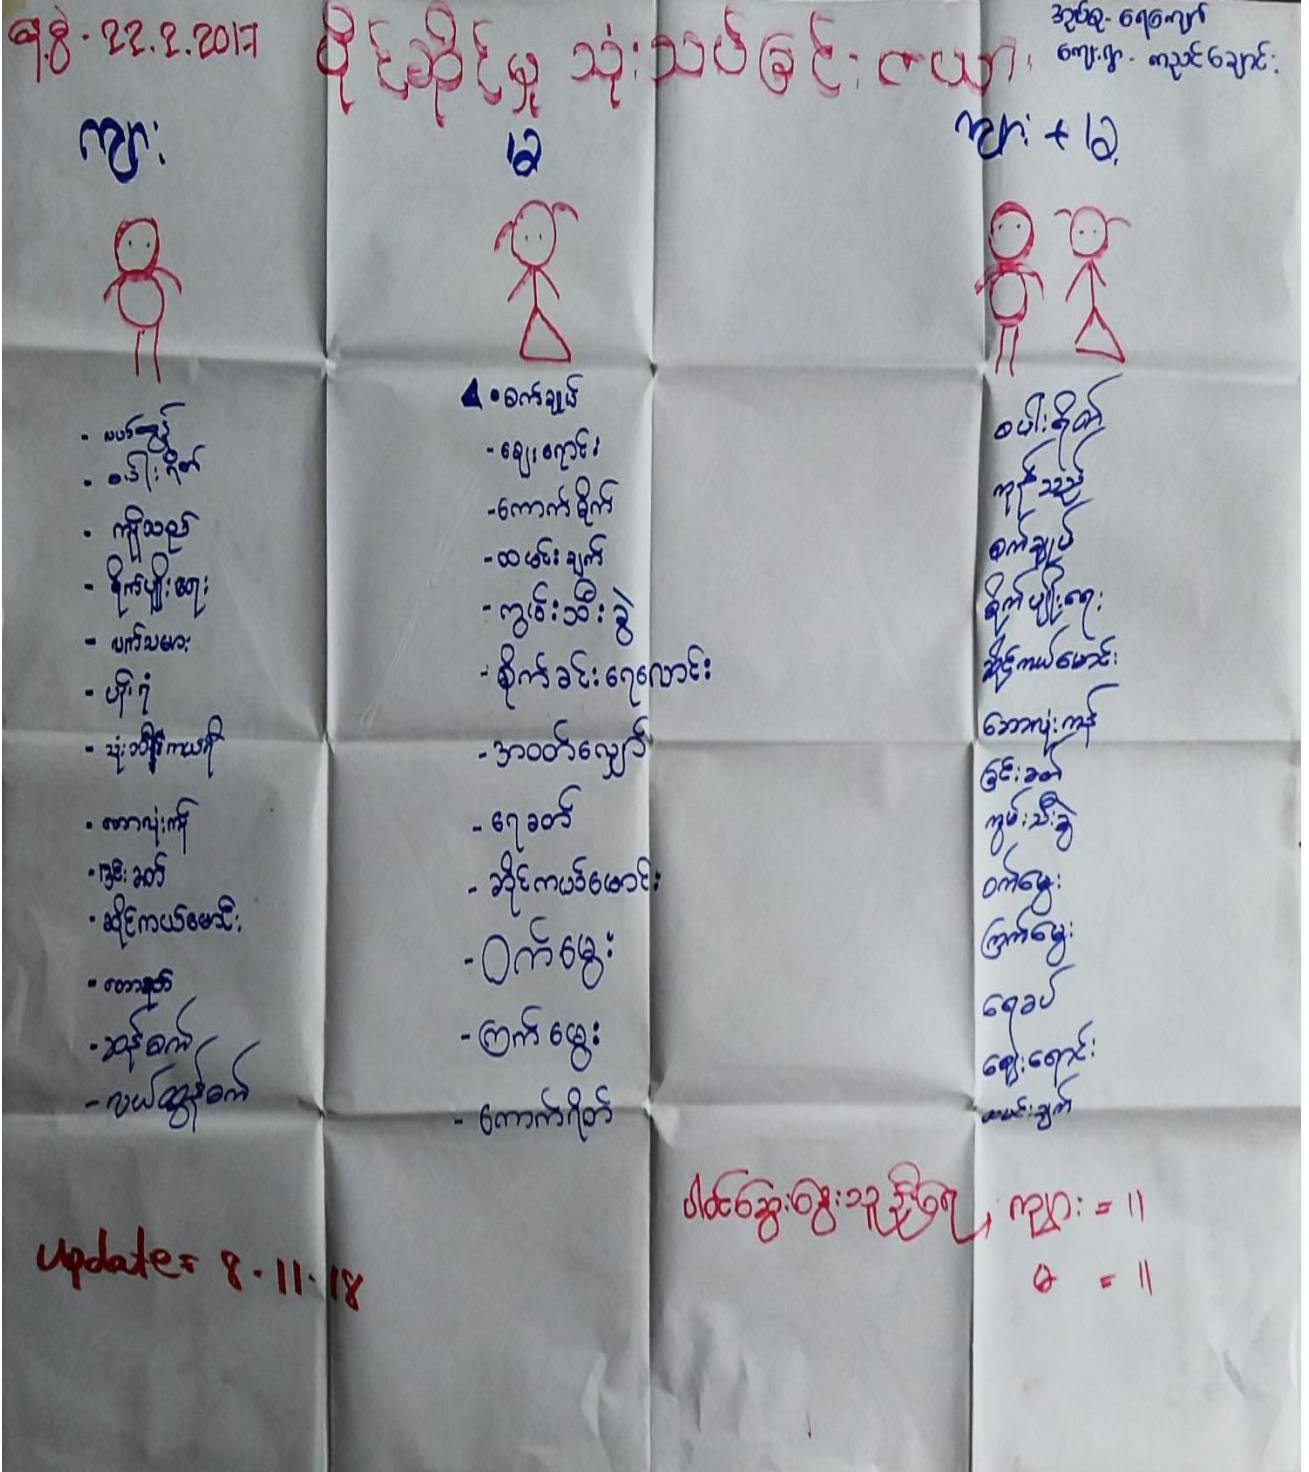 ရ.စွဲ - 22.2.2017
ပိုင်ဆိုင်မှု သုံးသပ်ခြင်းဇယား
အုပ်စု - ရေကျော်
ကျေးရွာ - ကညင်ချောင်း
ကျား
မ
ကျား + မ
- လယ်ထွန်
- စပါးရိတ်
- ကုန်သည်
- စိုက်ပျိုးရေး
- လက်သမား
- ပန်းရံ
- သုံးဘီးကယရီ
- ဘောလုံးကန်
- ခြင်းခတ်
- ဆိုင်ကယ်မောင်း
- တောခုတ်
- ဆန်စက်
- လယ်ထွန်စက်
- စက်ချုပ်
- ဈေးရောင်း
- ကောက်စိုက်
- ထမင်းချက်
- ကွမ်းသီးခွဲ
- စိုက်ခင်းရေလောင်း
- အဝတ်လျှော်
- ရေခတ်
- ဆိုင်ကယ်မောင်း
- ဝက်မွေး
- ကြက်မွေး
- ကောက်ရိတ်
စပါးရိတ်
ကုန်သည်
စက်ချုပ်
စိုက်ပျိုးရေး
ဆိုင်ကယ်မောင်း
ဘောလုံးကန်
ခြင်းခတ်
ကွမ်းသီးခွဲ
ဝက်မွေး
ကြက်မွေး
ရေခပ်
ဈေးရောင်း
ထမင်းချက်
ပါဝင်ဆွေးနွေးသူဦးရေ, ကျား = 11
မ = 11
update = 8.11.18